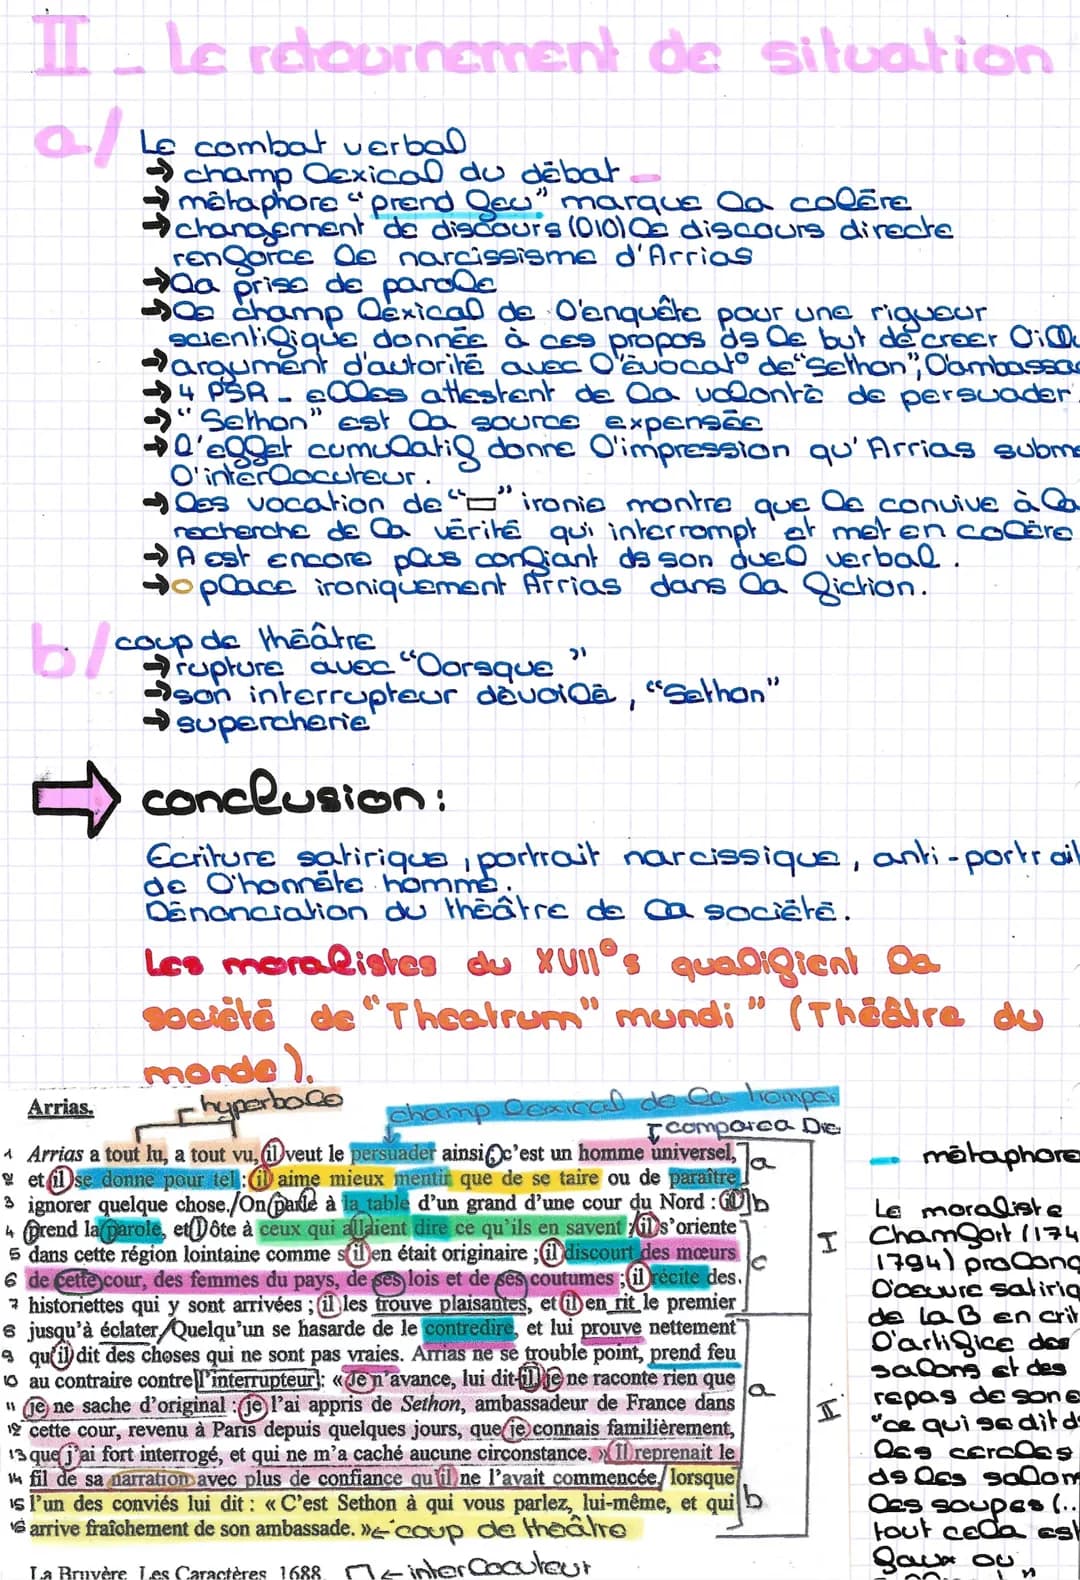 II - Le retournement de situation
a/ Le combat verbal
→ champ lexical du débat
→ métaphore "prend feu" marque la colère
→ changement de discours (l10) le discours directe
renforce le narcissisme d'Arrias
→ la prise de parole
→ le champ lexical de l'enquête pour une rigueur
scientifique donnée à ces propos ds le but de creer l'ill
→ argument d'autorité avec l'évocat° de "Sethon", l'ambassa
→ 4 PSR - elles attestent de la volonté de persuader.
→ "Sethon" est la source expensée
→ l'effet cumulatif donne l'impression qu'Arrias subme
l'interlocuteur.
→ les vocation de "▭" ironie montre que le convive à la
recherche de la vérité qui interrompt et met en colère
→ A est encore plus confiant ds son duel verbal.
→ o place ironiquement Arrias dans la fiction.
b/ coup de théâtre
→ rupture avec "lorsque"
→ son interrupteur dévoilé, "Sethon"
→ supercherie
⇒ conclusion :
Ecriture satirique, portrait narcissique, anti-portrait
de l'honnête homme.
Dénonciation du théâtre de la société.
Les moralistes du XVII°s qualifient la
société de "Theatrum" mundi" (Théâtre du
monde).
Arrias.
hyperbole
champ lexical de la tromper
compara
1 Arrias a tout lu, a tout vu, il veut le persuader ainsi ; c'est un homme universel,
2 et il se donne pour tel : il aime mieux mentir que de se taire ou de paraître
3 ignorer quelque chose./On parle à la table d'un grand d'une cour du Nord : il
4 prend la parole, et l'ôte à ceux qui allaient dire ce qu'ils en savent ; il s'oriente
5 dans cette région lointaine comme s'il en était originaire ; il discourt des mœurs
6 de cette cour, des femmes du pays, de ses lois et de ses coutumes ; il récite des
7 historiettes qui y sont arrivées ; il les trouve plaisantes, et il en rit le premier
8 jusqu'à éclater./Quelqu'un se hasarde de le contredire, et lui prouve nettement
9 qu'il dit des choses qui ne sont pas vraies. Arrias ne se trouble point, prend feu
10 au contraire contre l'interrupteur : « Je n'avance, lui dit-il, je ne raconte rien que
11 je ne sache d'original : je l'ai appris de Sethon, ambassadeur de France dans
12 cette cour, revenu à Paris depuis quelques jours, que je connais familièrement,
13 que j'ai fort interrogé, et qui ne m'a caché aucune circonstance. » Il reprenait le
14 fil de sa narration avec plus de confiance qu'il ne l'avait commencée,/ lorsque
15 l'un des conviés lui dit : « C'est Sethon à qui vous parlez, lui-même, et qui
16 arrive fraîchement de son ambassade. » ← coup de theâtre
La Bruyère, Les Caractères, 1688. ▭ ← interlocuteur
a
b
c
I
a
b
II
métaphore
Le moraliste
Chamfort (174
1794) prolong
l'oeuvre satiriq
de la B en crit
l'artifice des
salons et des
repas de son e
"ce qui se dit d
les cercles
ds les salon
les soupes (..
tout cela est
faux ou